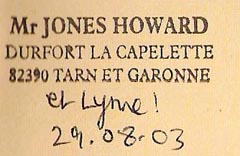 Mr JONES HOWARD
DURFORT LA CAPELETTE
82390 TARN ET GARONNE
et Lynne!
29.08.03